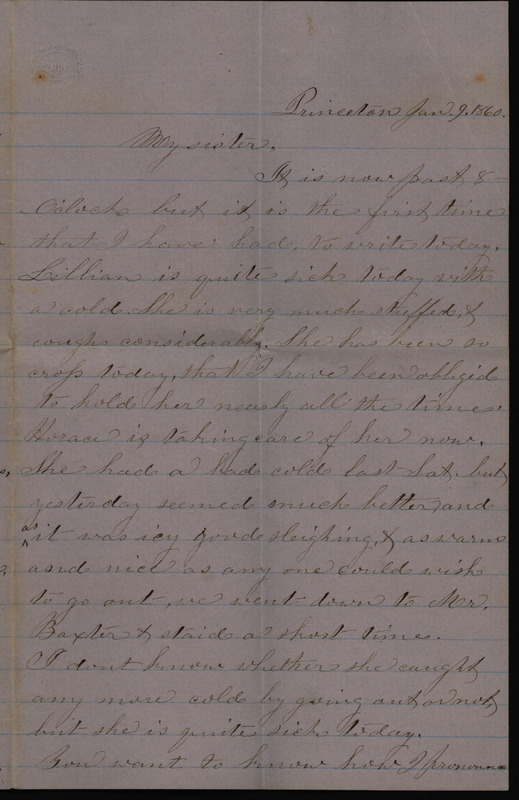 Princeton Jan. 9. 1860.
My sister.
It is now past 8
O'clock but it is the first time
that I have had, to write today.
Lillian is quite sick today with
a cold. She is very much stuffed, &
coughs considerably. She has been so
cross today, that I have been obligid
to hold her nearly all the time.
Horace is taking care of her now.
She had a bad cold last Sat. but
yesterday seemed much better, and
as it was icy good sleighing, & as warm
and nice as any one could wish
to go out, we went down to Mr.
Baxter & staid a short time.
I dont know whether she caught
any more cold by going out or not,
but she is quite sick today.
You want to know how I pronounce